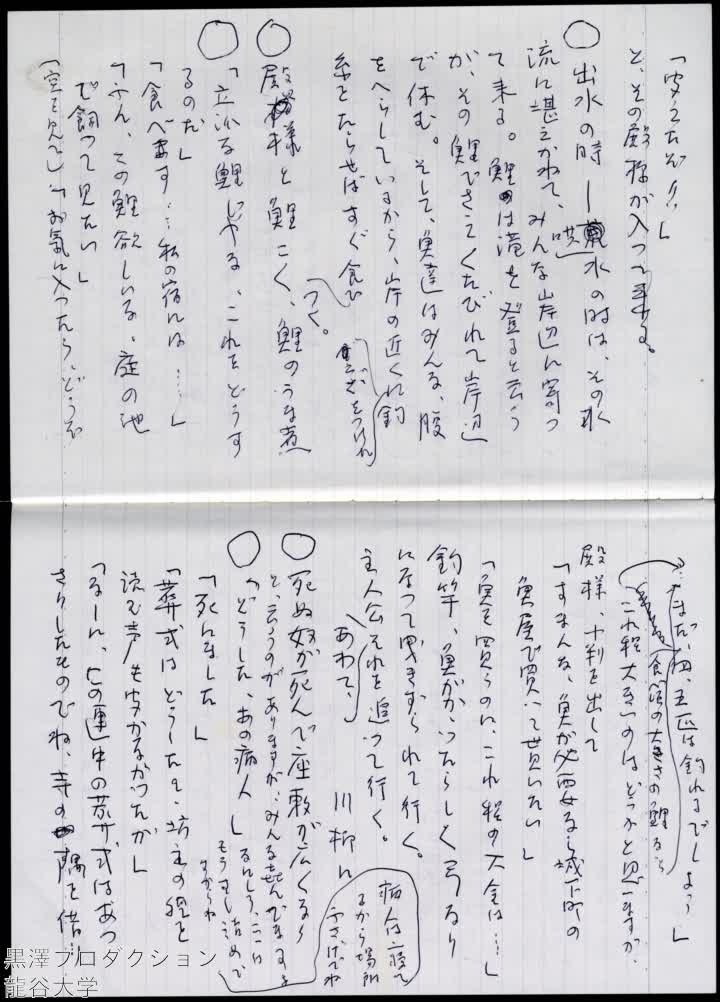 「安えたぞ!!」
と、その殿様が入って来る。
◯ 出水の時―洪水の時は、その水
流に堪えかねて、みんな岸辺に寄っ
て来る。鯉は滝を登ると云う
が、その鯉でさえくたびれて岸辺
で休む。そして、魚達はみんな、腹
をへらしているから、岸の近くに釣
糸をたらせばすぐ食ひつく。
◯ 殿様と鯉こく、鯉のうま煮
◯ 「立派な鯉ぢゃな、これをどうす
るのだ」
「食べます…私の宿には……」
「ふん、この鯉欲しいな、庭の池
で飼って見たい」
「お気に入ったら、どうぞ
「まだ、四、五匹は釣れるでしょう」
これ程大きいのはどうかと思いますが、
殿様、小判を出して
「すまんな、魚が必要なら城下町の
魚屋で買って貰いたい」
「魚を買うのに、これ程の大金は…」
釣竿、魚がかゝったらしく弓なり
になって曳きずられて行く。
主人公あわてゝそれを追って行く。
◯ 川柳に
死ぬ奴が死んで座敷が広くなり
と、云うのがありますが、みんな喜んでますよ
病人は寝て
るから場所
ふさげでね
◯ 「どうした、あの病人」
「死にました」
「葬式はどうした、坊主の経を
読む声も聞かなかったが」
「なーに、この連中の葬式はあっ
さりしたものでね、寺の隅を借…
黒澤プロダクション
龍谷大学